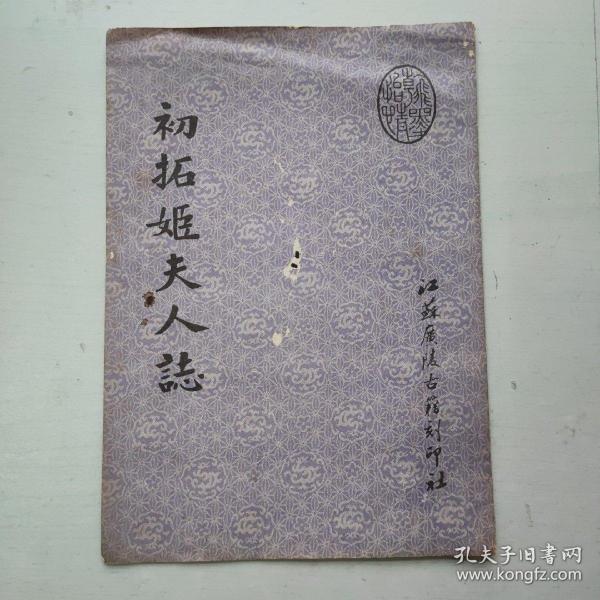 初拓姬夫人誌
江蘇廣陵古籍刻印社
孔夫子旧书网
www.kongfz.com